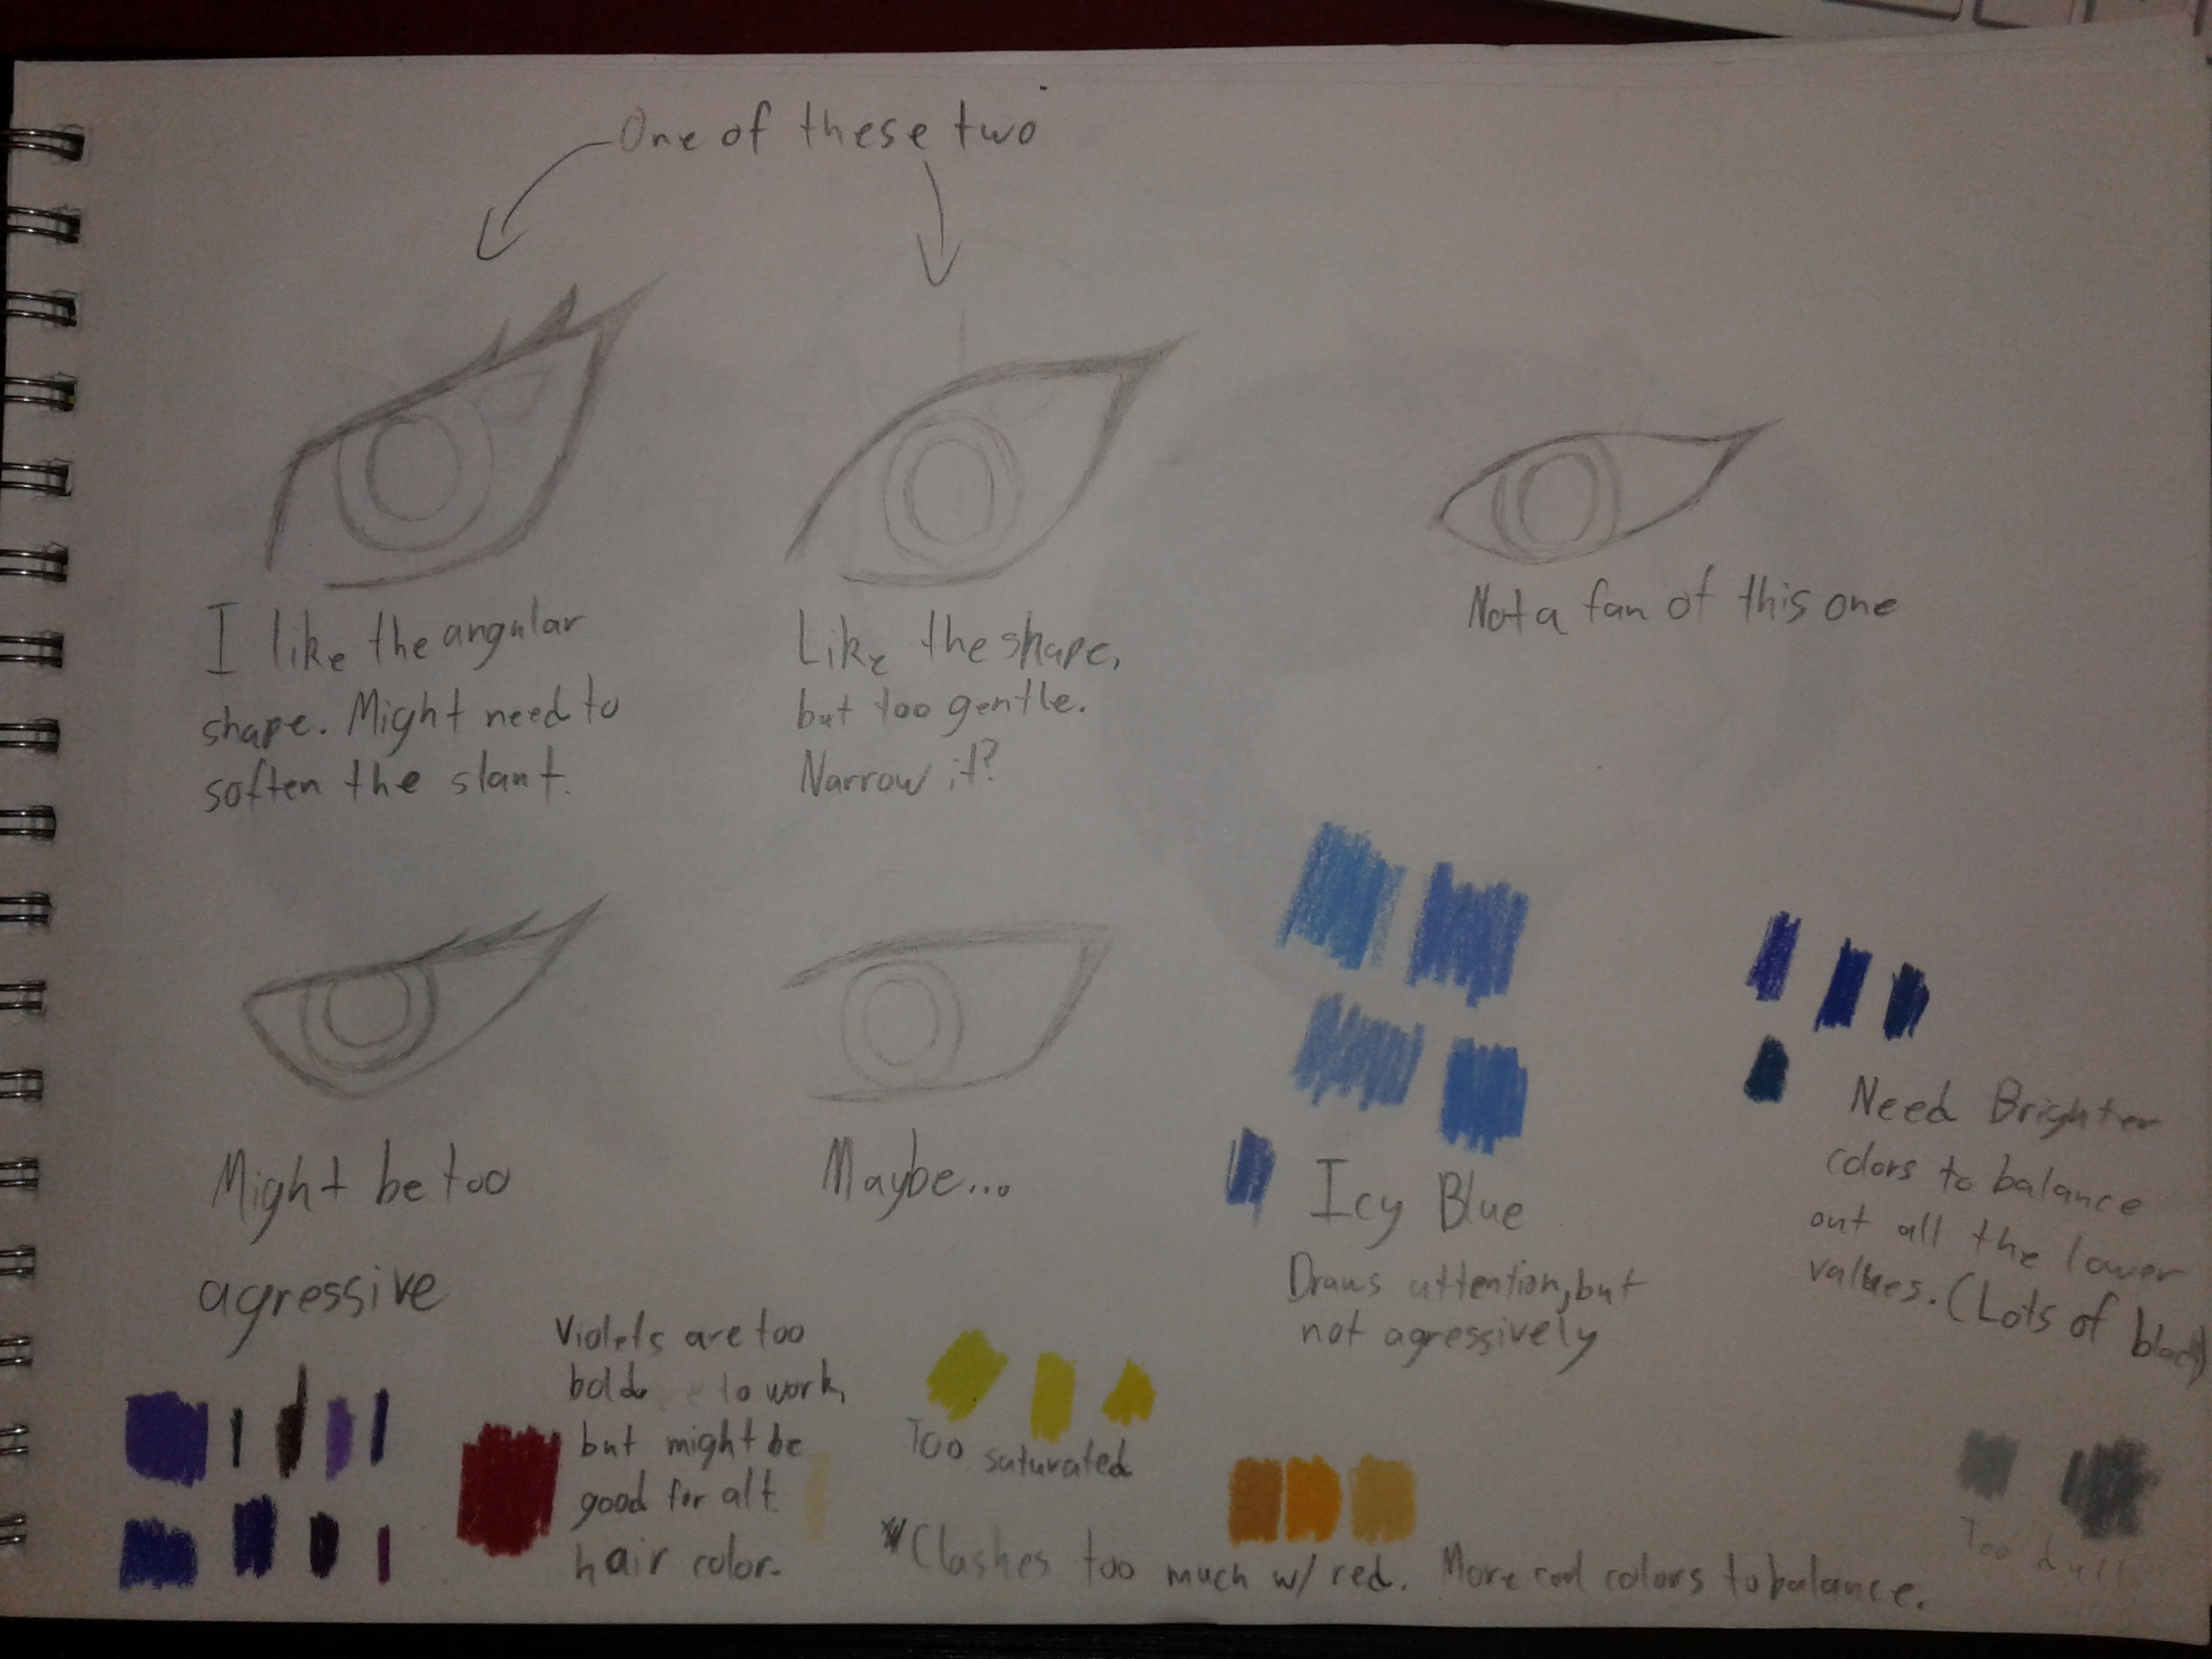 One of these two
I like the angular
shape. Might need to
soften the slant.
Like the shape,
but too gentle.
Narrow it?
Not a fan of this one
Might be too
agressive
Maybe...
Icy Blue
Draws attention, but
not agressively
Need Brighter
colors to balance
out all the lower
values. (Lots of black)
Violets are too
bold to work,
but might be
good for alt.
hair color.
Too saturated
*Clashes too much w/ red. More cool colors to balance.
Too dull